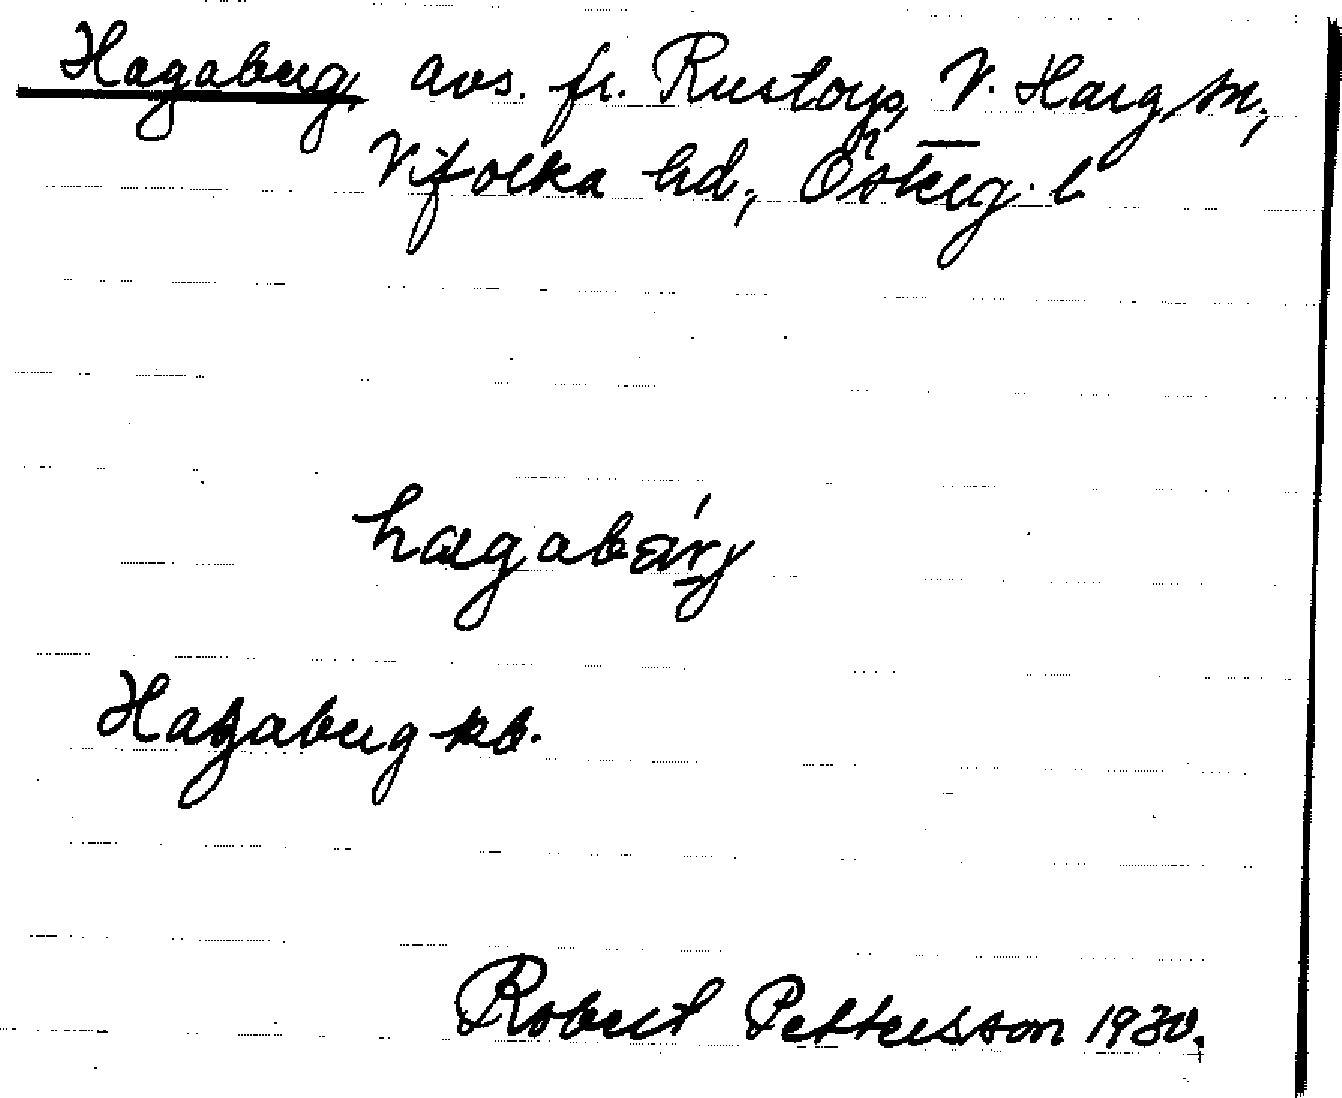 Hagaberg, avs. fr. Rustorp, V. Harg sn,
Vifolka hd, Österg. l
hagabärj
Hagaberg kb.
Robert Pettersson 1930.